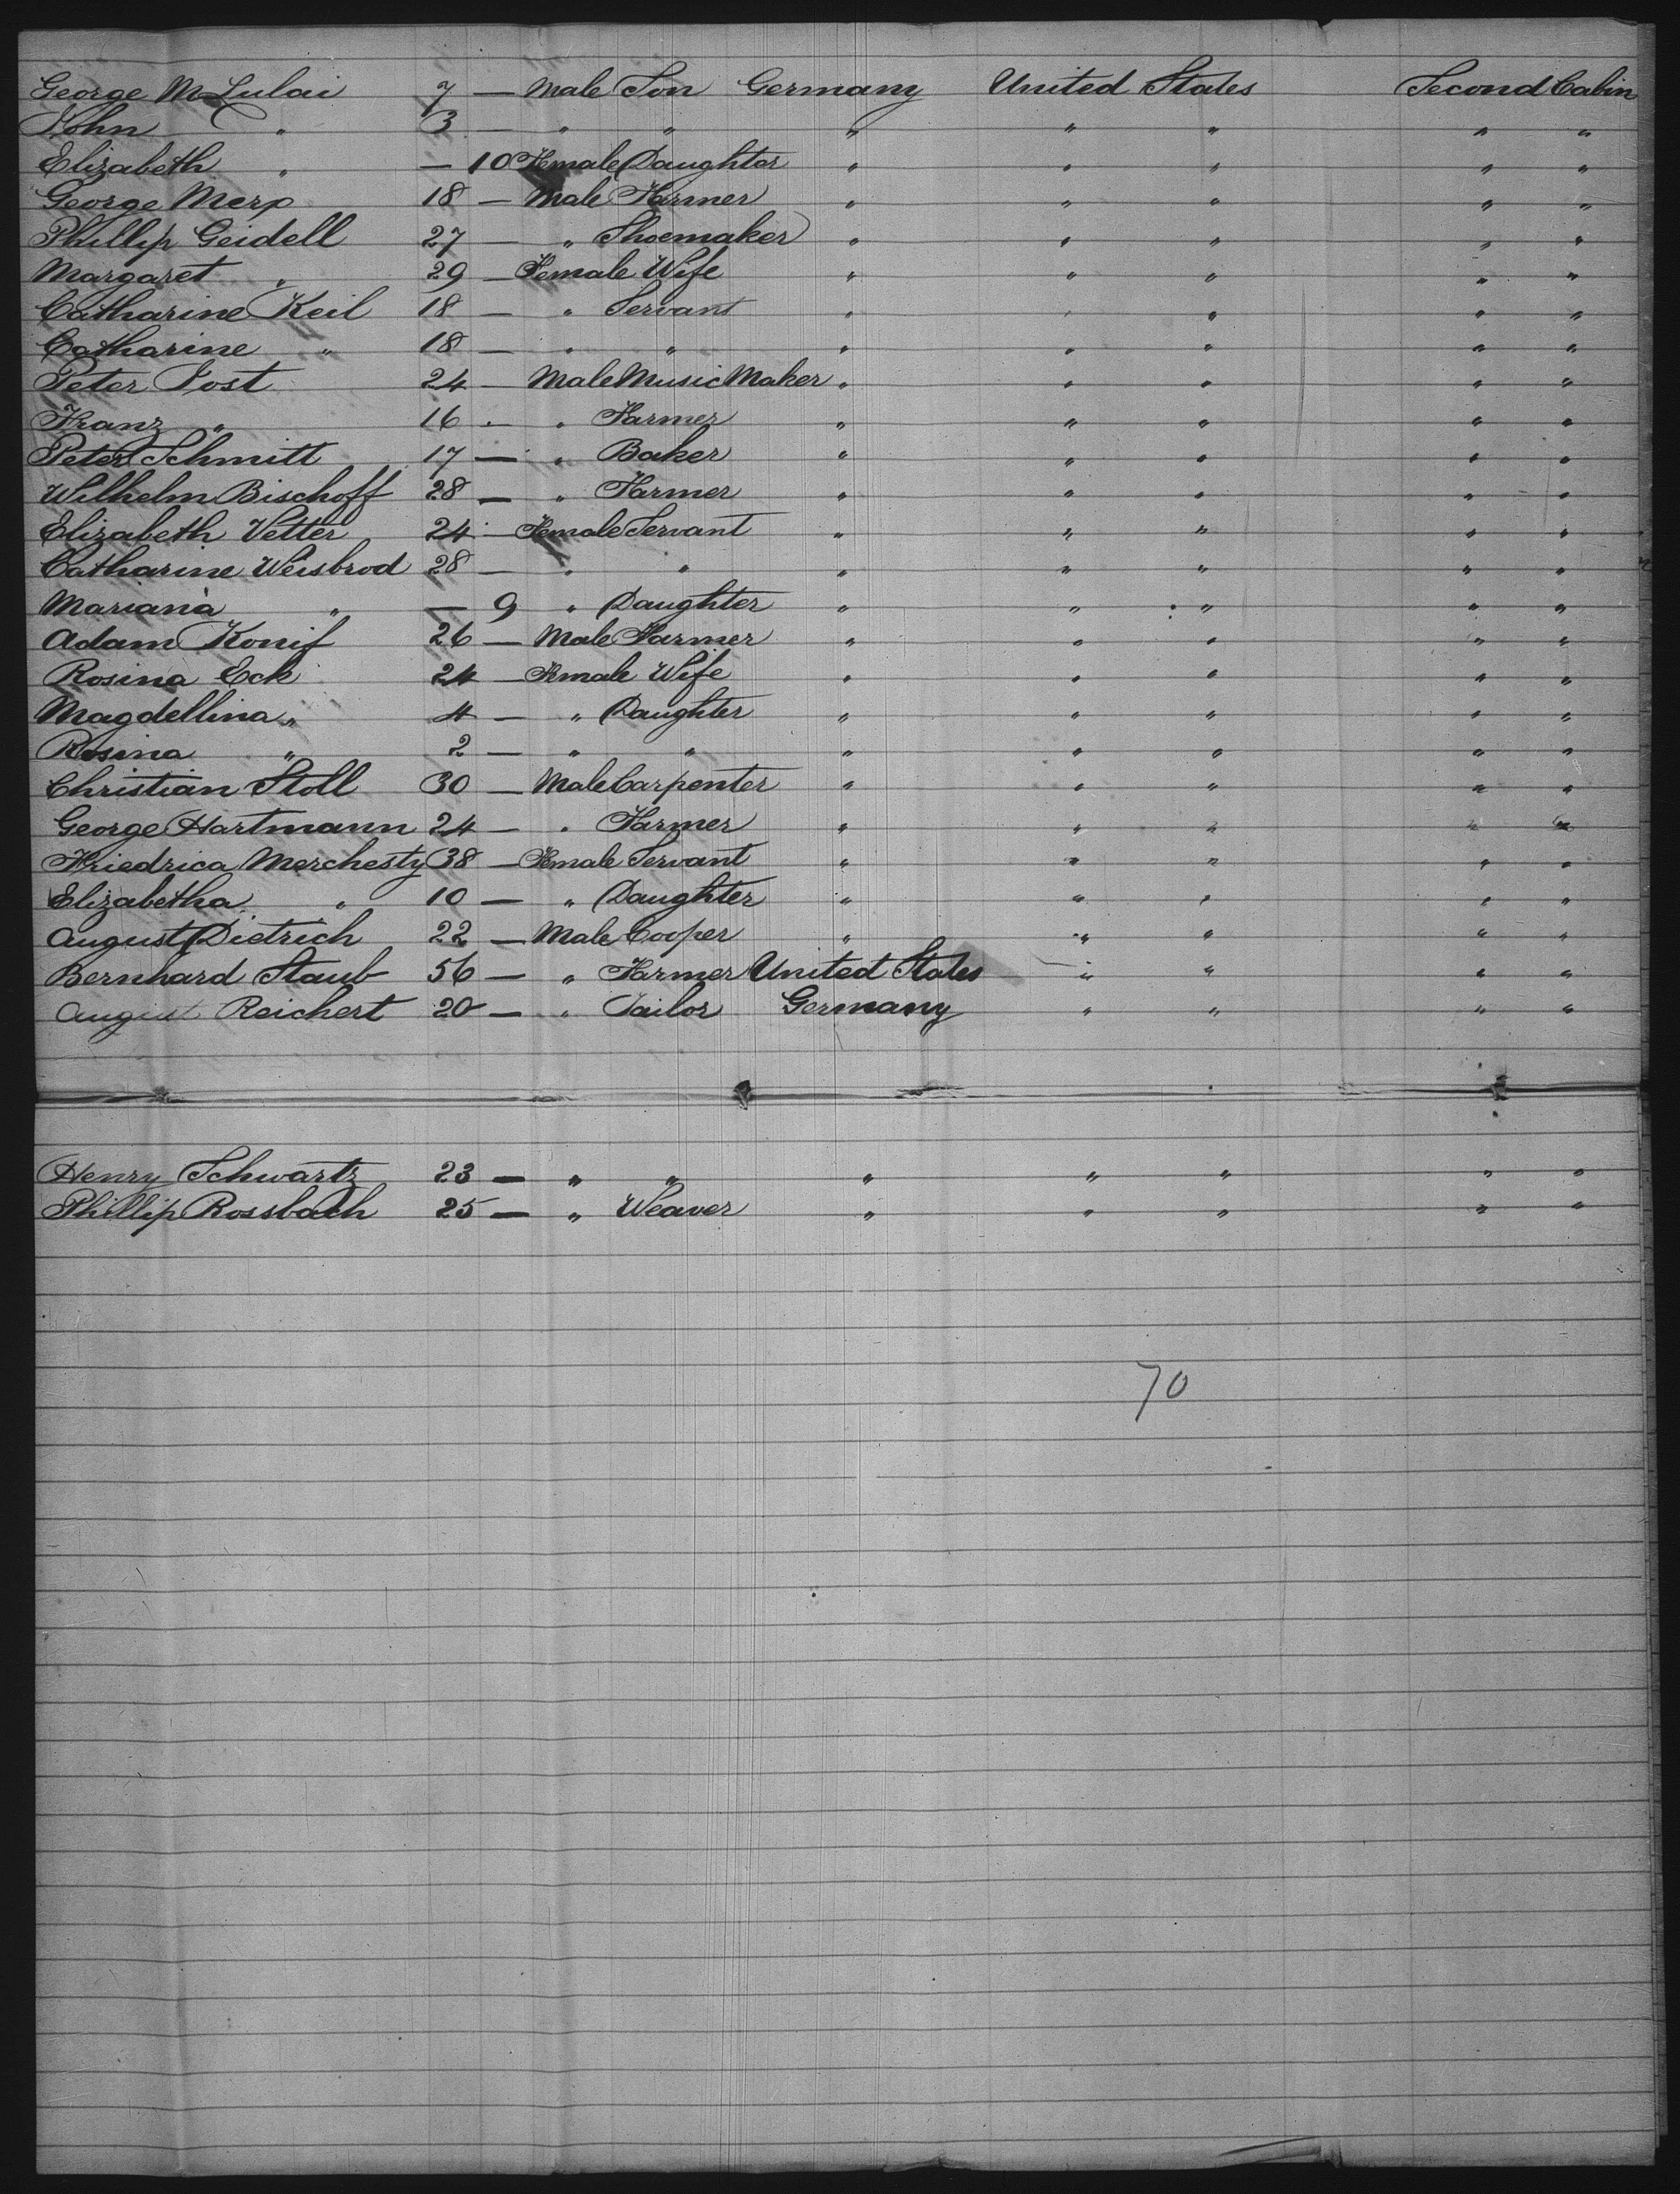 George M Lulai 7 — Male Son Germany United States Second Cabin
John " 3 — " " " " " " "
Elizabeth " — 10 Female Daughter " " " " "
George Merx 18 — Male Farmer " " " " "
Phillip Geidell 27 — " Shoemaker " " " " "
Margaret " 29 — Female Wife " " " " "
Catharine Keil 18 — " Servant " " " " "
Catharine " 18 — " " " " " " "
Peter Jost 24 — Male Music Maker " " " " "
Franz " 16 — " Farmer " " " " "
Peter Schmitt 17 — " Baker " " " " "
Wilhelm Bischoff 28 — " Farmer " " " " "
Elizabeth Vetter 24 — Female Servant " " " " "
Catharine Weisbrod 28 — " " " " " " "
Mariana " — 9 " Daughter " " " " "
Adam Konif 26 — Male Farmer " " " " "
Rosina Eck 24 — Female Wife " " " " "
Magdellina " 4 — " Daughter " " " " "
Rosina " 2 — " " " " " " "
Christian Stoll 30 — Male Carpenter " " " " "
George Hartmann 24 — " Farmer " " " " "
Friedrica Merchesty 38 — Female Servant " " " " "
Elizabetha " 10 — " Daughter " " " " "
August Dietrich 22 — Male Cooper " " " " "
Bernhard Staub 56 — " Farmer United States " " " "
August Reichert 20 — " Tailor Germany " " " "
Henry Schwartz 23 — " " " " " " "
Phillip Rossbach 25 — " Weaver " " " " "
70